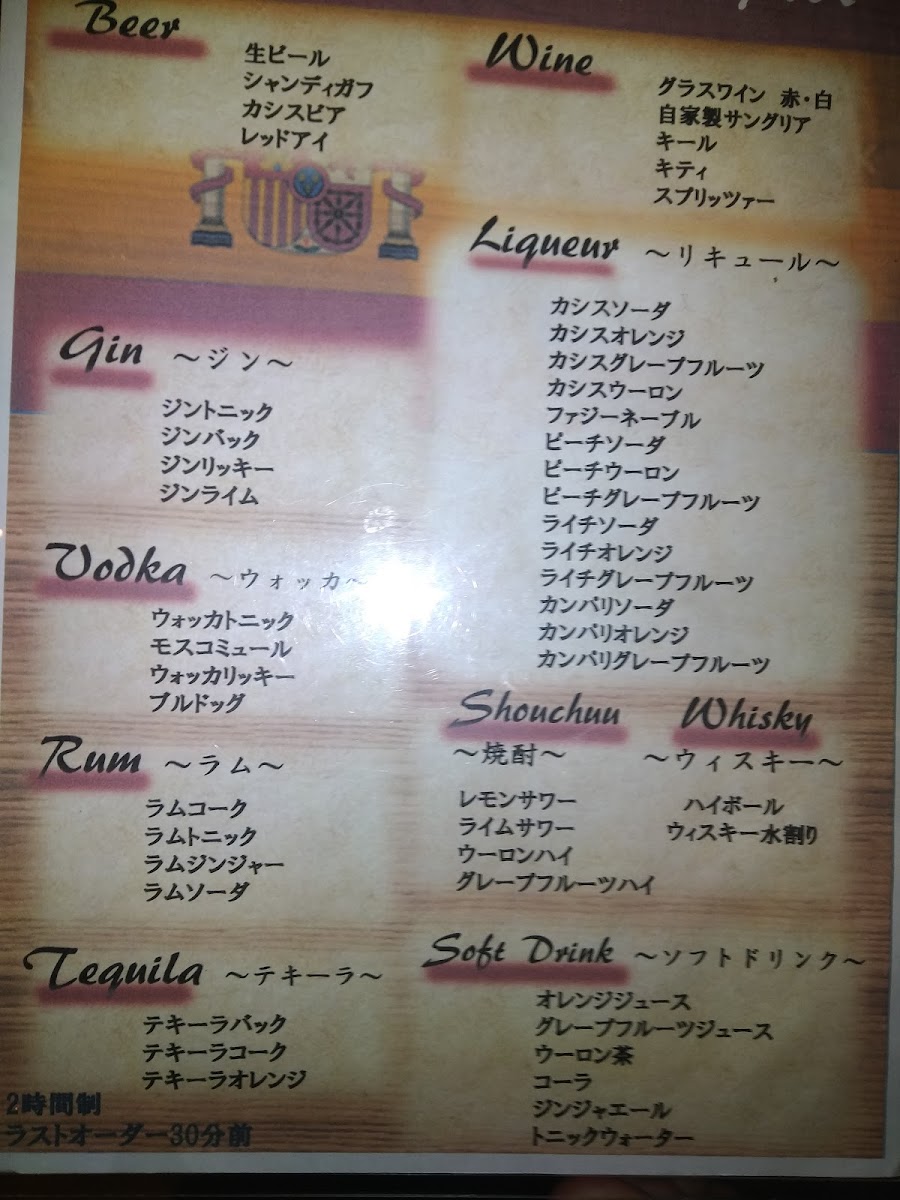 Beer
生ビール
シャンディガフ
カシスビア
レッドアイ
Gin ～ジン～
ジントニック
ジンバック
ジンリッキー
ジンライム
Vodka ～ウォッカ～
ウォッカトニック
モスコミュール
ウォッカリッキー
ブルドッグ
Rum ～ラム～
ラムコーク
ラムトニック
ラムジンジャー
ラムソーダ
Tequila ～テキーラ～
テキーラバック
テキーラコーク
テキーラオレンジ
2時間制
ラストオーダー30分前
Wine
グラスワイン 赤・白
自家製サングリア
キール
キティ
スプリッツァー
Liqueur ～リキュール～
カシスソーダ
カシスオレンジ
カシスグレープフルーツ
カシスウーロン
ファジーネーブル
ピーチソーダ
ピーチウーロン
ピーチグレープフルーツ
ライチソーダ
ライチオレンジ
ライチグレープフルーツ
カンパリソーダ
カンパリオレンジ
カンパリグレープフルーツ
Shouchuu
～焼酎～
レモンサワー
ライムサワー
ウーロンハイ
グレープフルーツハイ
Whisky
～ウィスキー～
ハイボール
ウィスキー水割り
Soft Drink ～ソフトドリンク～
オレンジジュース
グレープフルーツジュース
ウーロン茶
コーラ
ジンジャエール
トニックウォーター